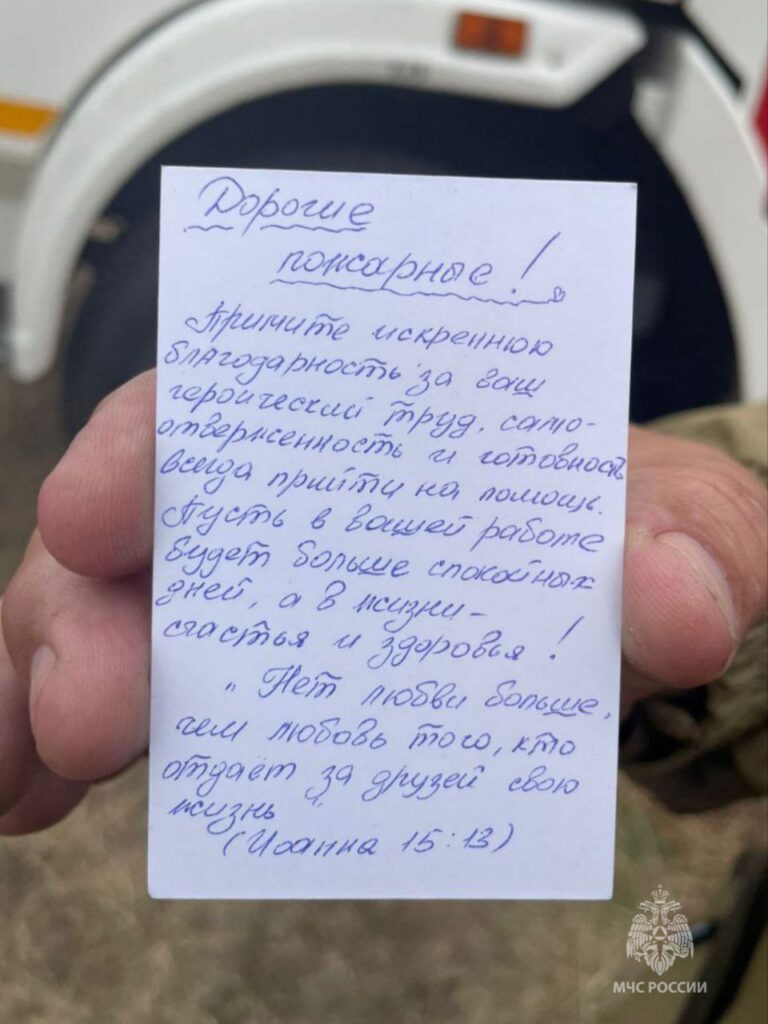 Дорогие
пожарные!
Примите искреннюю
благодарность за ваш
героический труд, само-
отверженность и готовность
всегда прийти на помощь.
Пусть в вашей работе
будет больше спокойных
дней, а в жизни –
счастья и здоровья!
„Нет любви больше,
чем любовь того, кто
отдаёт за друзей свою
жизнь“
(Иоанна 15:13)
МЧС РОССИИ